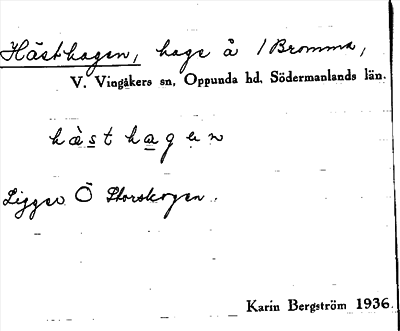 Hästhagen, hage å 1 Bromma,
V. Vingåkers sn, Oppunda hd, Södermanlands län.
hàst hagen
Ligger Ö Storskogen.
Karin Bergström 1936